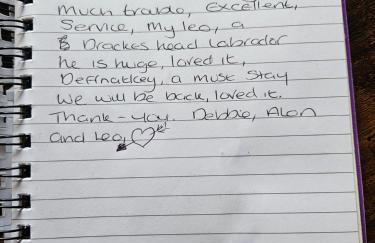 much trouble, excellent,
Service, My leo, a
Drackes head labrador
he is huge, loved it,
Definatley, a must stay
We will be back, loved it.
Thank-you. Debbie, Alan
and Leo,